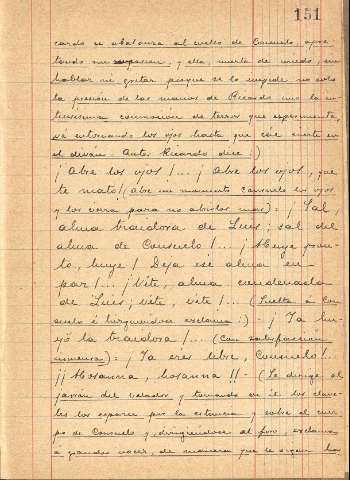 151
cardo se abalanza al cuello de Consuelo, apre-
tando sin compasión; y ella, muerta de miedo, sin
hablar ni gritar porque se lo impide no solo
la presión de las manos de Ricardo sino la in-
tensísima conmoción de terror que experimenta,
va entornando los ojos hasta que cae inerte en
el diván. Auto. Ricardo dice:)
¡Abre los ojos!... ¡Abre los ojos, que
te mato! (abre un momento Consuelo los ojos
y los cierra para no abrirlos mas): ¡Sal,
alma traidora de Luis; sal del
alma de Consuelo!... ¡Huye pron-
to, huye! Deja ese alma en
paz!... ¡Vete, alma condenada
de Luis; vete, vete!... (Suelta á Con-
suelo é irguiendose exclama:) ¡Ya hu-
yó la traidora!... (Con satisfacción
inmensa): ¡Ya eres libre, Consuelo!
¡¡Hosanna, hosanna!!- (Se dirige al
jarrón del velador y tomando en él los clave-
les los esparce por la estancia y sobre el cuer-
po de Consuelo y, dirigiendose al foro, exclama
á grandes voces, de manera que le oigan los